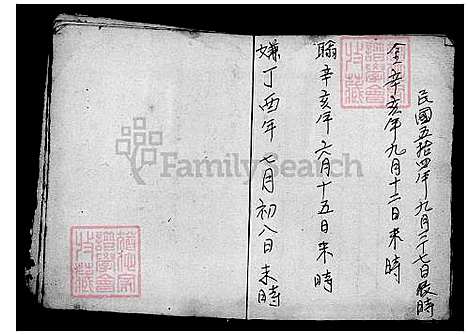 民國五拾四年九月二十七日辰時
全辛亥年九月十二日未時
聪辛亥年六月十五日未時
嫌丁酉年七月初八日未時
FamilySearch